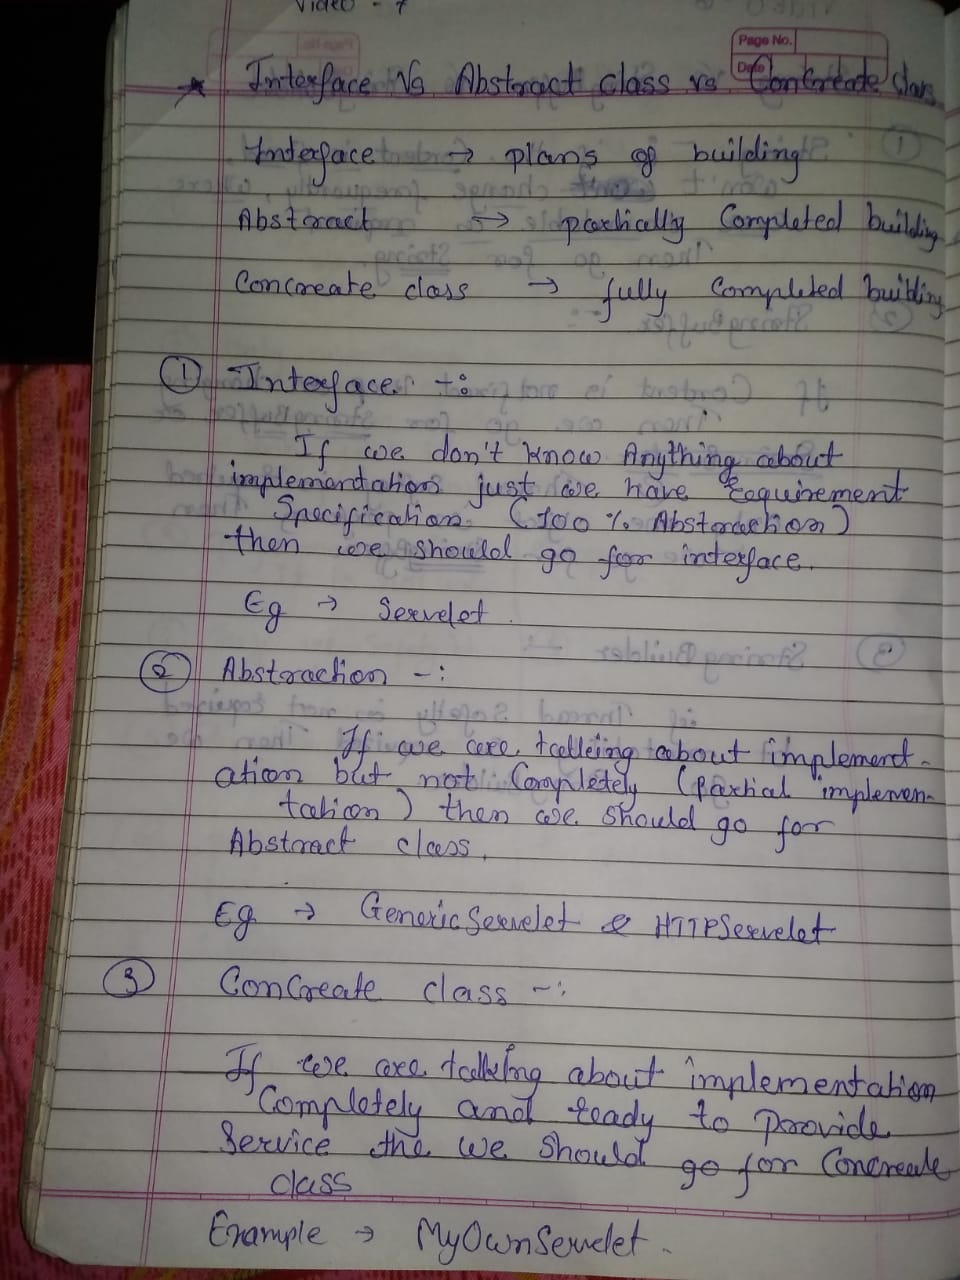 Video - 7
Page No.
Date
* Interface Vs Abstract class vs Concreate class
Interface → plans of building
Abstract → partically Completed building
Concreate class → fully Completed building
① Interface -:
If we don't know Anything about
implementation just we have requirement
Specification (100 % Abstraction)
then we should go for interface.
Eg → Servelet.
② Abstraction -:
If we are talking about implement-
ation but not Completely (partial implemen-
tation) then we should go for
Abstract class.
Eg → Generic Servelet & HTTPServelet
③ ConCreate class -:
If we are talking about implementation
Completely and ready to provide
Service the we should go for Concreate
class
Example → MyOwnServelet.